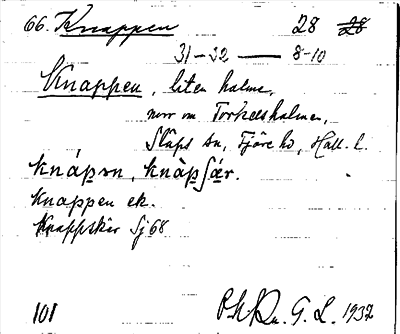 66. Knappen 28 28
31–32 — 8–10
Knappen, liten holme,
norr om Torkelsholmen,
Släps sn, Fjäre hd, Hall. l.
Knappen ek.
Knappskär Sj 68
101 G. L. 1932